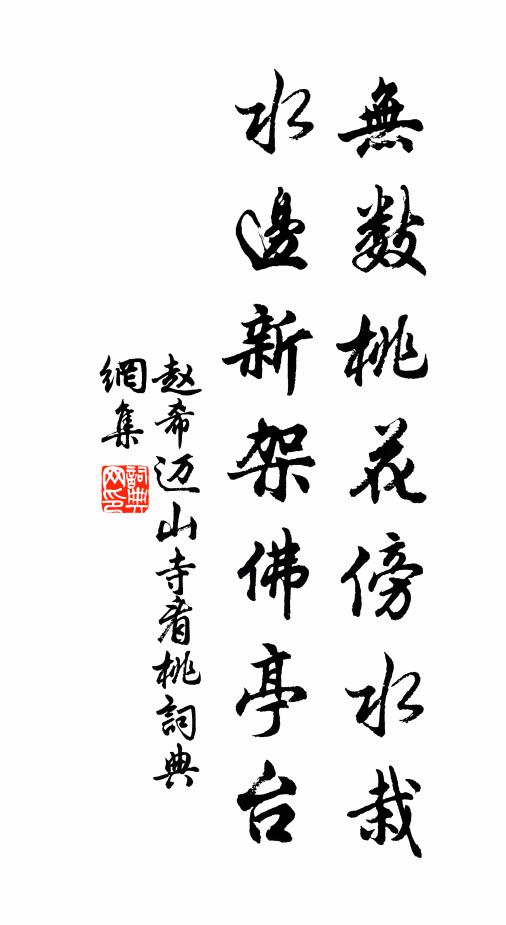 無數桃花傍水栽
水邊新架佛亭台
赵希迈山寺看桃詞典
網集
詞典網印